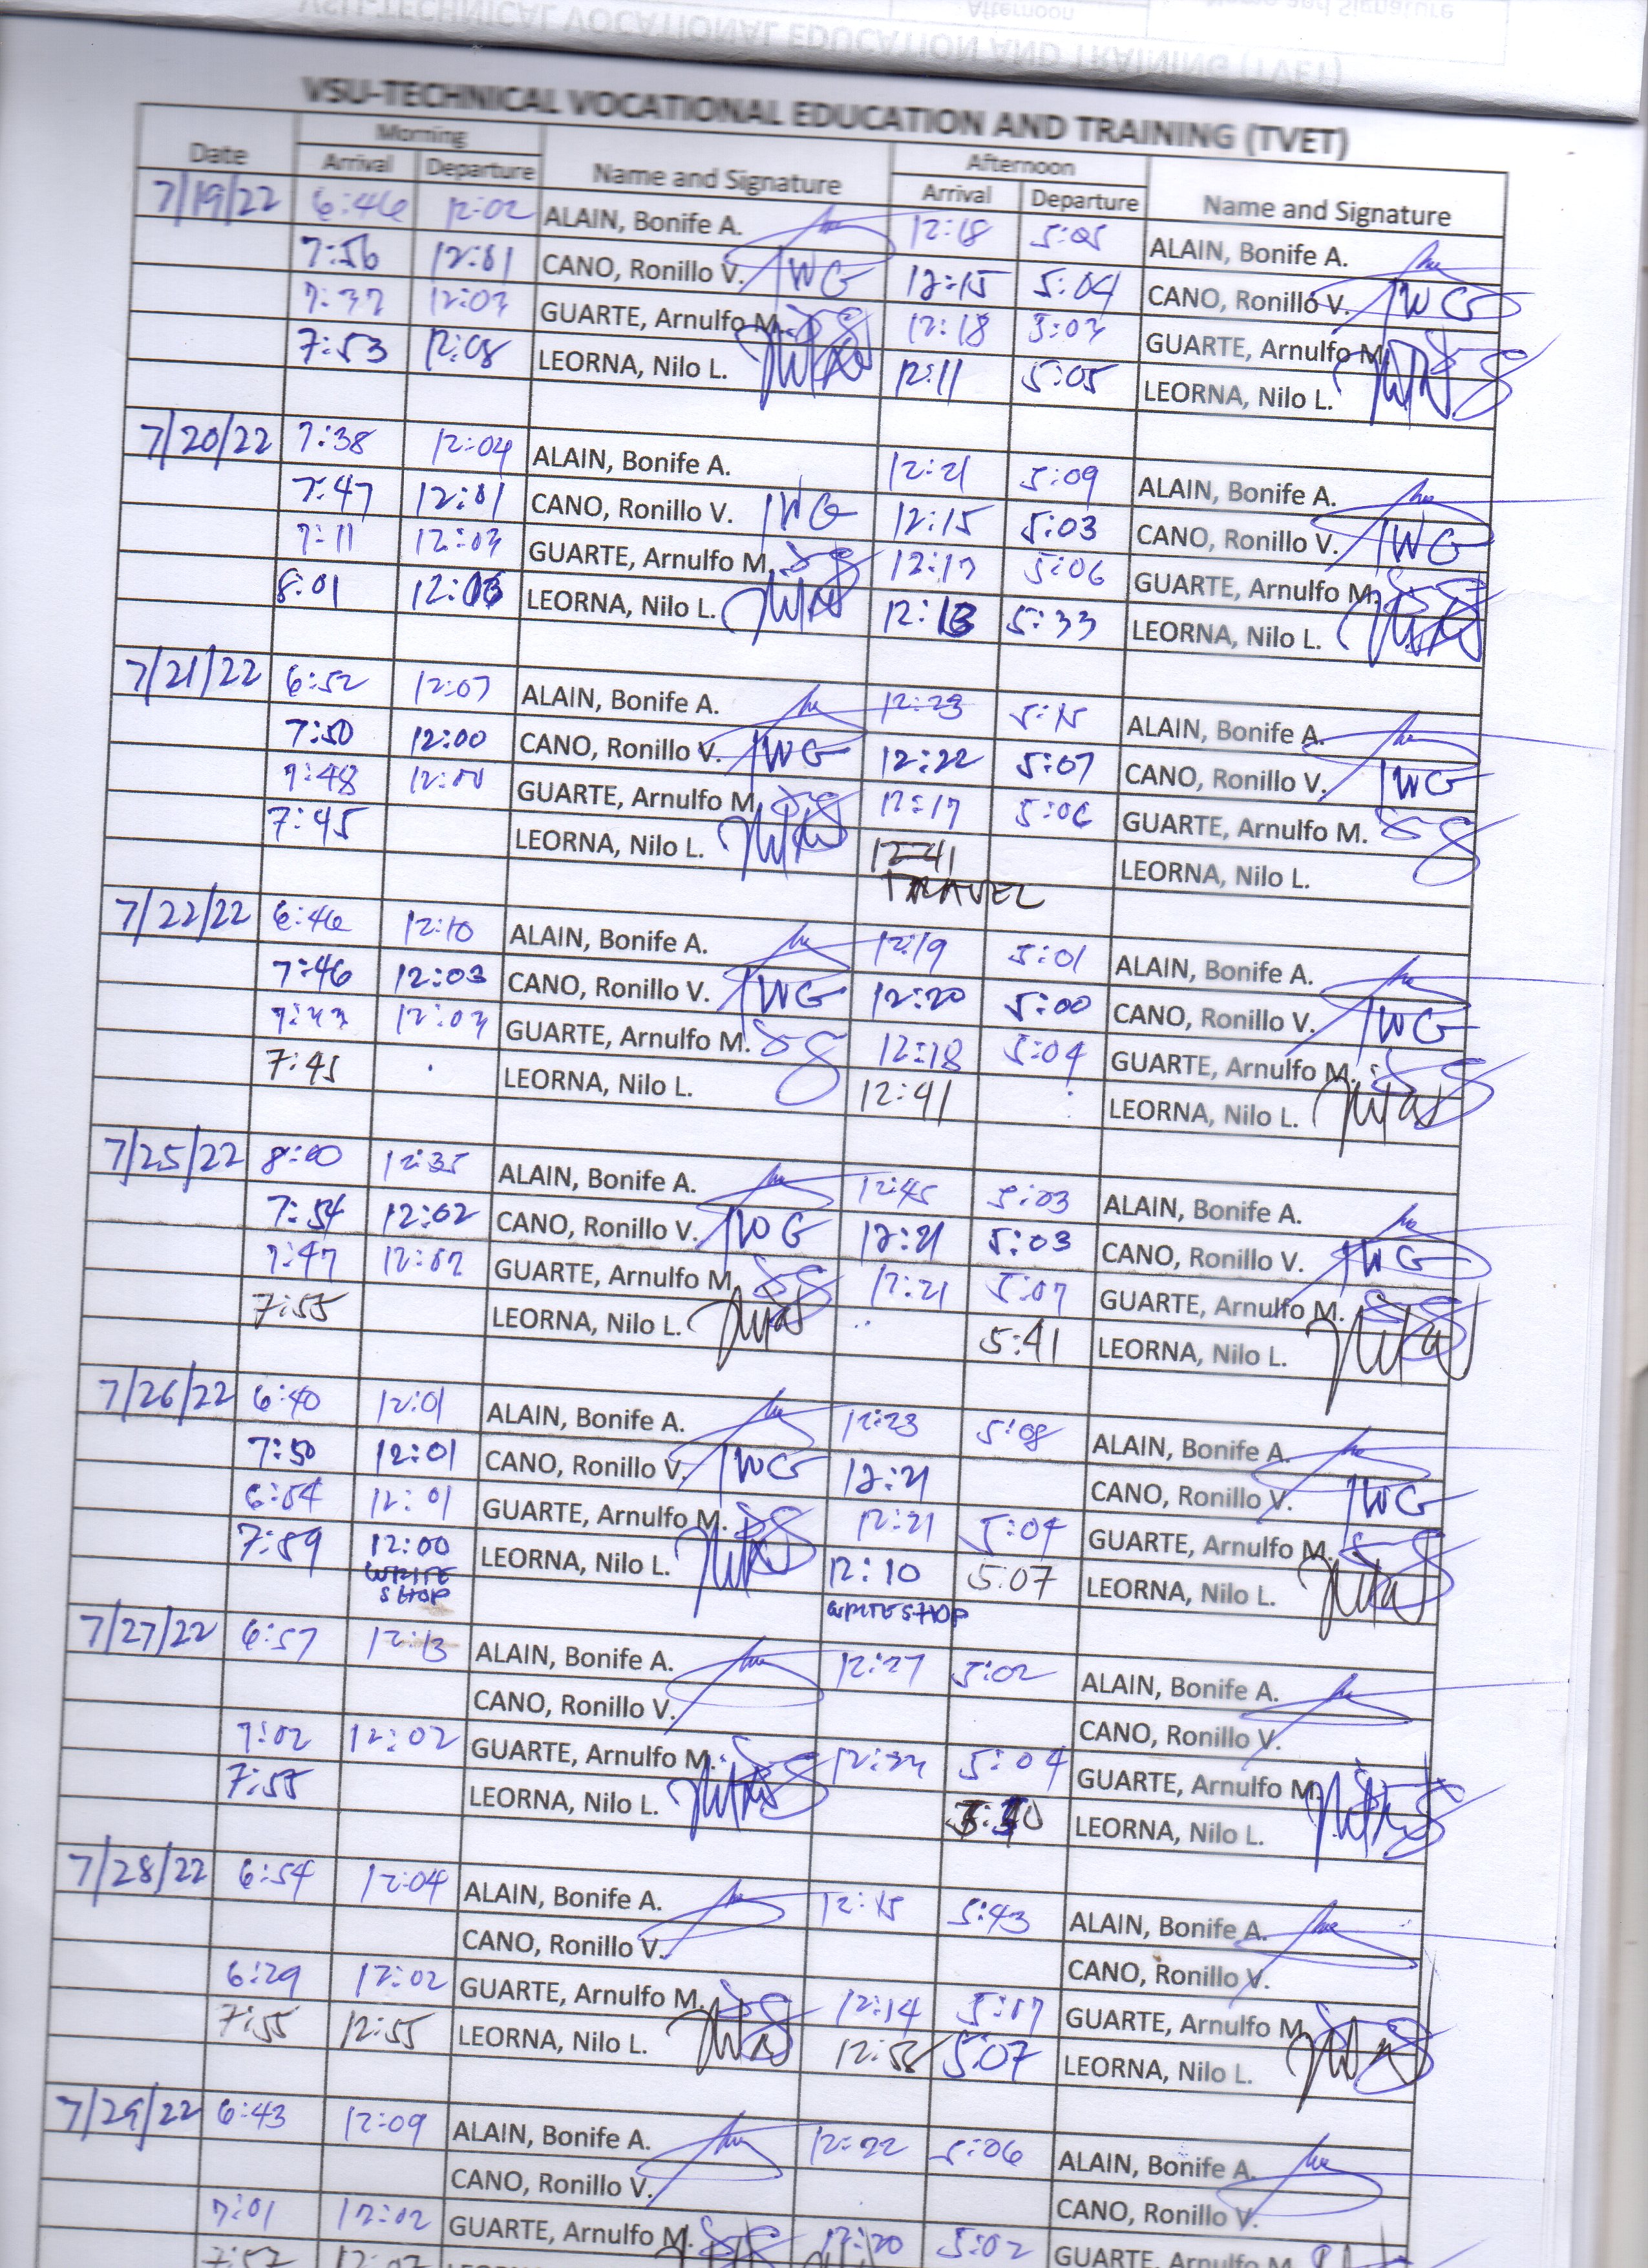 VSU-TECHNICAL VOCATIONAL EDUCATION AND TRAINING (TVET)
Morning Afternoon
Date Arrival Departure Name and Signature Arrival Departure Name and Signature
7/19/22 6:46 12:02 ALAIN, Bonife A. 12:18 5:05 ALAIN, Bonife A.
7:56 12:01 CANO, Ronillo V. 12:15 5:04 CANO, Ronillo V.
7:37 12:03 GUARTE, Arnulfo M. 12:18 5:03 GUARTE, Arnulfo M.
7:53 12:08 LEORNA, Nilo L. 12:11 5:05 LEORNA, Nilo L.
7/20/22 7:38 12:04 ALAIN, Bonife A. 12:21 5:09 ALAIN, Bonife A.
7:47 12:01 CANO, Ronillo V. 12:15 5:03 CANO, Ronillo V.
7:11 12:03 GUARTE, Arnulfo M. 12:17 5:06 GUARTE, Arnulfo M.
8:01 LEORNA, Nilo L. 12:13 5:33 LEORNA, Nilo L.
7/21/22 6:52 12:07 ALAIN, Bonife A. 12:23 5:15 ALAIN, Bonife A.
7:50 12:00 CANO, Ronillo V. 12:22 5:07 CANO, Ronillo V.
7:48 12:00 GUARTE, Arnulfo M. 12:17 5:06 GUARTE, Arnulfo M.
7:45 LEORNA, Nilo L. 12:41 LEORNA, Nilo L.
TRAVEL
7/22/22 6:46 12:10 ALAIN, Bonife A. 12:19 5:01 ALAIN, Bonife A.
7:46 12:03 CANO, Ronillo V. 12:20 5:00 CANO, Ronillo V.
7:43 12:03 GUARTE, Arnulfo M. 12:18 5:04 GUARTE, Arnulfo M.
7:45 LEORNA, Nilo L. 12:41 LEORNA, Nilo L.
7/25/22 8:00 12:35 ALAIN, Bonife A. 12:45 5:03 ALAIN, Bonife A.
7:54 12:02 CANO, Ronillo V. 12:21 5:03 CANO, Ronillo V.
7:47 12:02 GUARTE, Arnulfo M. 12:21 5:07 GUARTE, Arnulfo M.
7:55 LEORNA, Nilo L. 5:41 LEORNA, Nilo L.
7/26/22 6:40 12:01 ALAIN, Bonife A. 12:23 5:08 ALAIN, Bonife A.
7:50 12:01 CANO, Ronillo V. 12:21 CANO, Ronillo V.
6:54 12:01 GUARTE, Arnulfo M. 12:21 5:04 GUARTE, Arnulfo M.
7:59 12:00 LEORNA, Nilo L. 12:10 5:07 LEORNA, Nilo L.
WRITE SHOP WRITESHOP
7/27/22 6:57 12:13 ALAIN, Bonife A. 12:27 5:02 ALAIN, Bonife A.
CANO, Ronillo V. CANO, Ronillo V.
7:02 12:02 GUARTE, Arnulfo M. 5:04 GUARTE, Arnulfo M.
7:55 LEORNA, Nilo L. LEORNA, Nilo L.
7/28/22 6:54 12:04 ALAIN, Bonife A. 12:15 5:43 ALAIN, Bonife A.
CANO, Ronillo V. CANO, Ronillo V.
6:29 12:02 GUARTE, Arnulfo M. 12:14 5:17 GUARTE, Arnulfo M.
7:55 12:55 LEORNA, Nilo L. 12:58 5:07 LEORNA, Nilo L.
7/29/22 6:43 12:09 ALAIN, Bonife A. 12:22 5:06 ALAIN, Bonife A.
CANO, Ronillo V. CANO, Ronillo V.
7:01 12:02 GUARTE, Arnulfo M. 12:20 5:02 GUARTE, Arnulfo M.